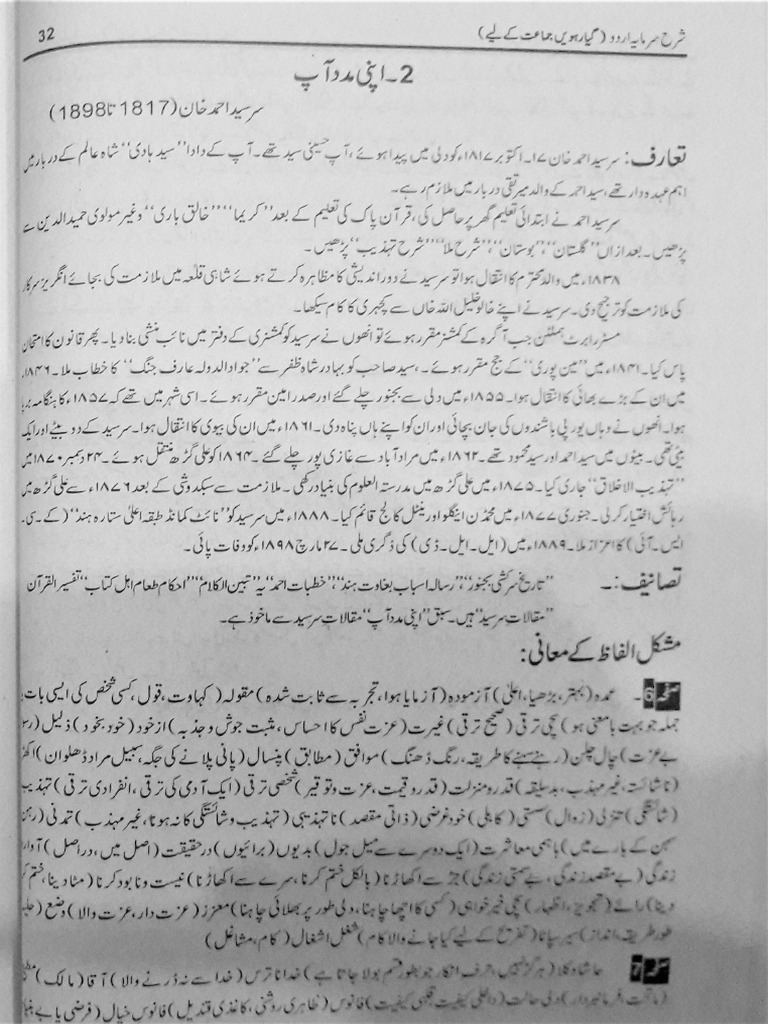 32
شرح سرمایہ اردو (گیارھویں جماعت کے لیے)
2۔ اپنی مدد آپ
سرسید احمد خان (1817 تا 1898)
تعارف: سرسید احمد خان ۱۷۔اکتوبر ۱۸۱۷ء کو دلی میں پیدا ہوئے، آپ حسینی سید تھے۔ آپ کے دادا ’’سید ہادی‘‘ شاہ عالم کے دربار میں
اہم عہدہ دار تھے، سید احمد کے والد میر تقی دربار میں ملازم رہے۔
سرسید احمد نے ابتدائی تعلیم گھر پر حاصل کی، قرآن پاک کی تعلیم کے بعد ’’کریما‘‘ ’’خالق باری‘‘ وغیر مولوی حمید الدین سے
پڑھیں۔ بعد ازاں ’’گلستان‘‘، ’’بوستان‘‘، ’’شرح ملا‘‘ ’’شرح تہذیب‘‘ پڑھیں۔
۱۸۳۸ء میں والد محترم کا انتقال ہوا تو سرسید نے دور اندیشی کا مظاہرہ کرتے ہوئے شاہی قلعہ میں ملازمت کی بجائے انگریز سرکار
کی ملازمت کو ترجیح دی۔ سرسید نے اپنے خالو خلیل اللہ خاں سے کچہری کا کام سیکھا۔
مسٹر رابرٹ ہملٹن جب آگرہ کے کمشنر مقرر ہوئے تو انھوں نے سرسید کو کمشنری کے دفتر میں نائب منشی بنا دیا۔ پھر قانون کا امتحان
پاس کیا۔ ۱۸۴۱ء میں ’’مین پوری‘‘ کے جج مقرر ہوئے۔، سید صاحب کو بہادر شاہ ظفر سے ’’جواد الدولہ عارف جنگ‘‘ کا خطاب ملا۔ ۱۸۴۶ء
میں ان کے بڑے بھائی کا انتقال ہوا۔ ۱۸۵۵ء میں دلی سے بجنور چلے گئے اور صدر امین مقرر ہوئے۔ اسی شہر میں تھے کہ ۱۸۵۷ء کا ہنگامہ برپا
ہوا۔ انھوں نے وہاں یورپی باشندوں کی جان بچائی اور ان کو اپنے ہاں پناہ دی۔ ۱۸۶۱ء میں ان کی بیوی کا انتقال ہوا۔ سرسید کے دو بیٹے اور ایک
بیٹی تھی۔ بیٹوں میں سید احمد اور سید محمود تھے۔ ۱۸۶۲ء میں مرادآباد سے غازی پور چلے گئے۔ ۱۸۶۴ کو علی گڑھ منتقل ہوئے۔ ۲۴ دسمبر ۱۸۷۰ میں
’’تہذیب الاخلاق‘‘ جاری کیا۔ ۱۸۷۵ء میں علی گڑھ میں مدرستہ العلوم کی بنیاد رکھی۔ ملازمت سے سبکدوشی کے بعد ۱۸۷۶ء سے علی گڑھ میں
رہائش اختیار کر لی۔ جنوری ۱۸۷۷ء میں محمڈن اینگلو اورینٹل کالج قائم کیا۔ ۱۸۸۸ء میں سرسید کو ’’نائٹ کمانڈ طبقہ اعلیٰ ستارہ ہند‘‘ (کے۔سی۔
ایس۔آئی) کا اعزاز ملا۔ ۱۸۸۹ء میں (ایل۔ایل۔ڈی) کی ڈگری ملی۔ ۲۷ مارچ ۱۸۹۸ کو وفات پائی۔
تصانیف:۔ ’’تاریخ سرکشی بجنور‘‘، ’’رسالہ اسباب بغاوت ہند‘‘، ’’خطبات احمدیہ‘‘ ’’تبین الکلام‘‘ ’’احکام طعام اہل کتاب‘‘ تفسیر القرآن
’’مقالات سرسید‘‘ ہیں۔ سبق ’’اپنی مدد آپ‘‘ مقالات سرسید سے ماخوذ ہے۔
مشکل الفاظ کے معانی:
صفحہ 6۔ عمدہ (بہتر، بڑھیا، اعلیٰ) آزمودہ (آزمایا ہوا، تجربہ سے ثابت شدہ) مقولہ (کہاوت، قول، کسی شخص کی ایسی بات
جملہ جو بہت بامعنی ہو) سچی ترقی (صحیح ترقی) غیرت (عزت نفس کا احساس، مثبت جوش و جذبہ) از خود (خود بخود) ذلیل (
بے عزت) چال چلن (رہنے سہنے کا طریقہ، رنگ ڈھنگ) موافق (مطابق) پنسال (پانی پلانے کی جگہ، سبیل مراد ڈھلوان)
(ناشائستہ، غیر مہذب، بدسلیقہ) قدر و منزلت (قدر و قیمت، عزت و توقیر) شخصی ترقی (ایک آدمی کی ترقی، انفرادی ترقی) تہذیب
(شائستگی) تنزلی (زوال) سستی (کاہلی) خود غرضی (ذاتی مقصد) ناتہذیبی (تہذیب و شائستگی کا نہ ہونا، غیر مہذب) تمدنی (
سہن کے بارے میں) باہمی معاشرت (ایک دوسرے سے میل جول) بدیوں (برائیوں) درحقیقت (اصل میں، دراصل)
زندگی (بے مقصد زندگی، بے سمتی زندگی) جڑ سے اکھاڑنا (بالکل ختم کرنا، سرے سے اکھاڑنا) نیست و نابود کرنا (مٹا دینا، ختم
دینا) رائے (تجویز، اظہار) سچی خیر خواہی (کسی کا اچھا چاہنا، دلی طور پر بھلائی چاہنا) معزز (عزت دار، عزت والا) وضع (
طور طریقہ، انداز) سیر سپاٹا (تفریح کے لیے کیا جانے والا کام) شغل اشغال (کام، مشاغل)
صفحہ 7۔ حاشا و کلا (ہرگز نہیں، حرف انکار جو بطور قسم بولا جاتا ہے) خدا ناترس (خدا سے نہ ڈرنے والا) آقا (مالک)
(ماتحت، فرمانبردار) دلی حالت (داخلی کیفیت قلبی کیفیت) فانوس (ظاہری روشنی، کاغذی قندیل) فانوس خیال (فرضی یا بے